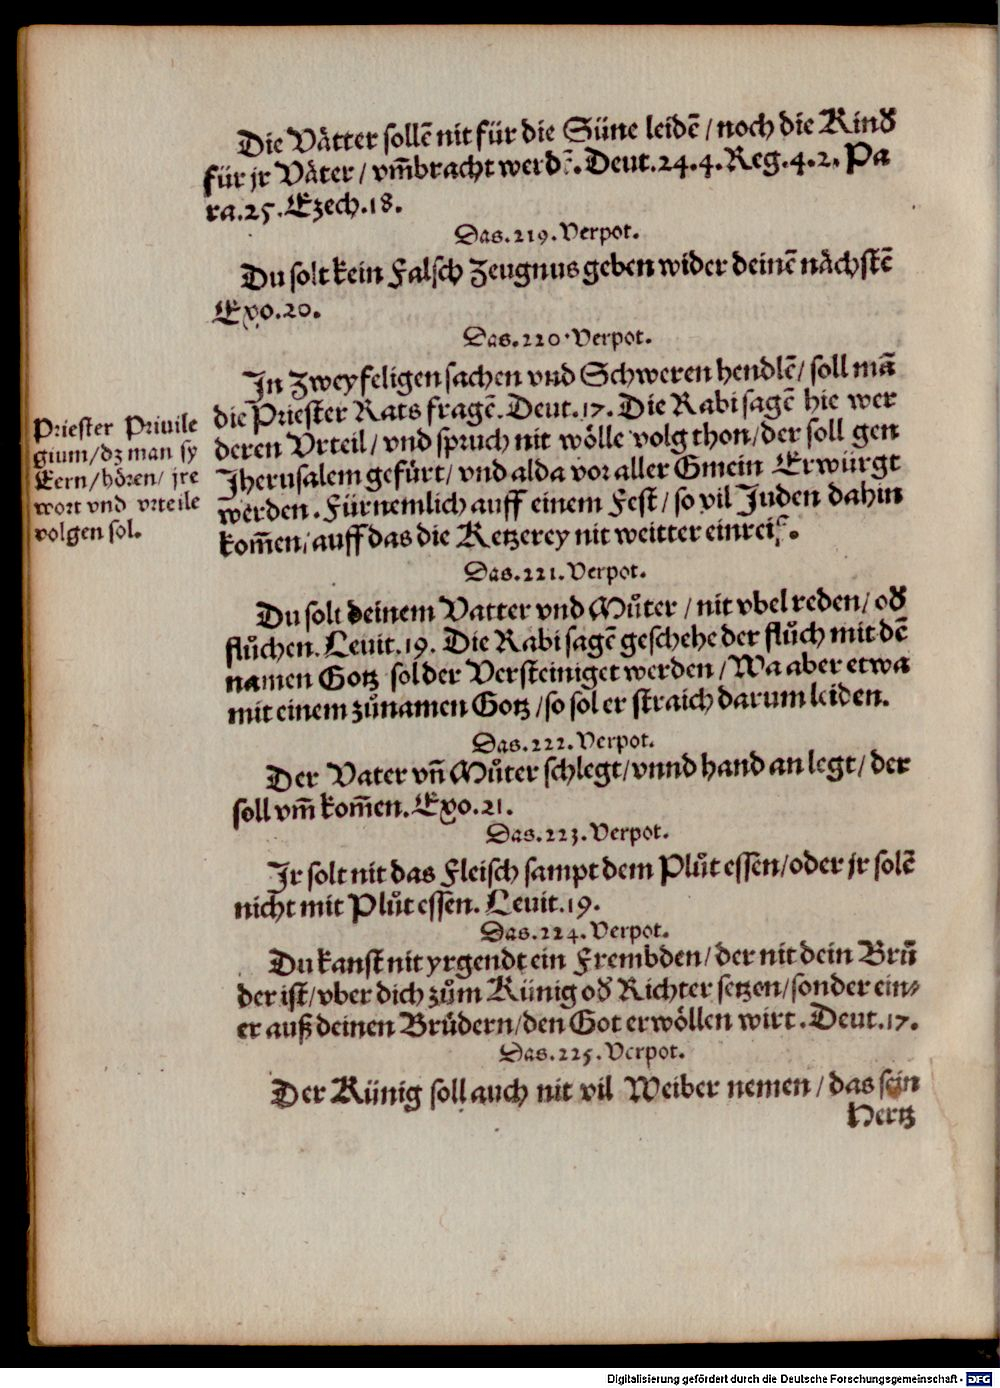 Die Vätter sollẽ nit für die Süne leidẽ / noch die Kinđ
für jr Väter / vm̃bracht werdẽ. Deut.24.4.Reg.4.2. Pa
ra.25.Ezech.18.
Das.219.Verpot.
Du solt kein Falsch Zeugnus geben wider deinẽ nächstẽ
Exo.20.
Das.220.Verpot.
In Zweyfeligen sachen vnd Schweren hendlẽ / soll mã
die Priester Rats fragẽ. Deut.17. Die Rabi sagẽ hie wer
deren Vrteil / vnd spruch nit wölle volg thon / der soll gen
Jherusalem gefürt / vnd alda vor aller Gmein Erwürgt
werden. Fürnemlich auff einem Fest / so vil Juden dahin
kom̃en / auff das die Ketzerey nit weitter einreiß.
Priester Priuile
gium / dz man sy
Eern / hören / jre
wort vnd vrteile
volgen sol.
Das.221.Verpot.
Du solt deinem Vatter vnd Můter / nit vbel reden / ođ
flůchen. Leuit.19. Die Rabi sagẽ geschehe der flůch mit dẽ
namen Gotz sol der Versteiniget werden / Wa aber etwa
mit einem zůnamen Gotz / so sol er straich darum leiden.
Das.222.Verpot.
Der Vater vñ Můter schlegt / vnnd hand an legt / der
soll vm̃ kom̃en. Exo.21.
Das.223.Verpot.
Jr solt nit das Fleisch sampt dem Plůt essen / oder jr solẽ
nicht mit Plůt essen. Leuit.19.
Das.224.Verpot.
Du kanst nit yrgendt ein Frembden / der nit dein Brů
der ist / vber dich zům Künig ođ Richter setzen / sonder ein⸗
er auß deinen Brüdern / den Got erwöllen wirt. Deut.17.
Das.225.Verpot.
Der Künig soll auch nit vil Weiber nemen / das sein
Hertz
Digitalisierung gefördert durch die Deutsche Forschungsgemeinschaft - DFG